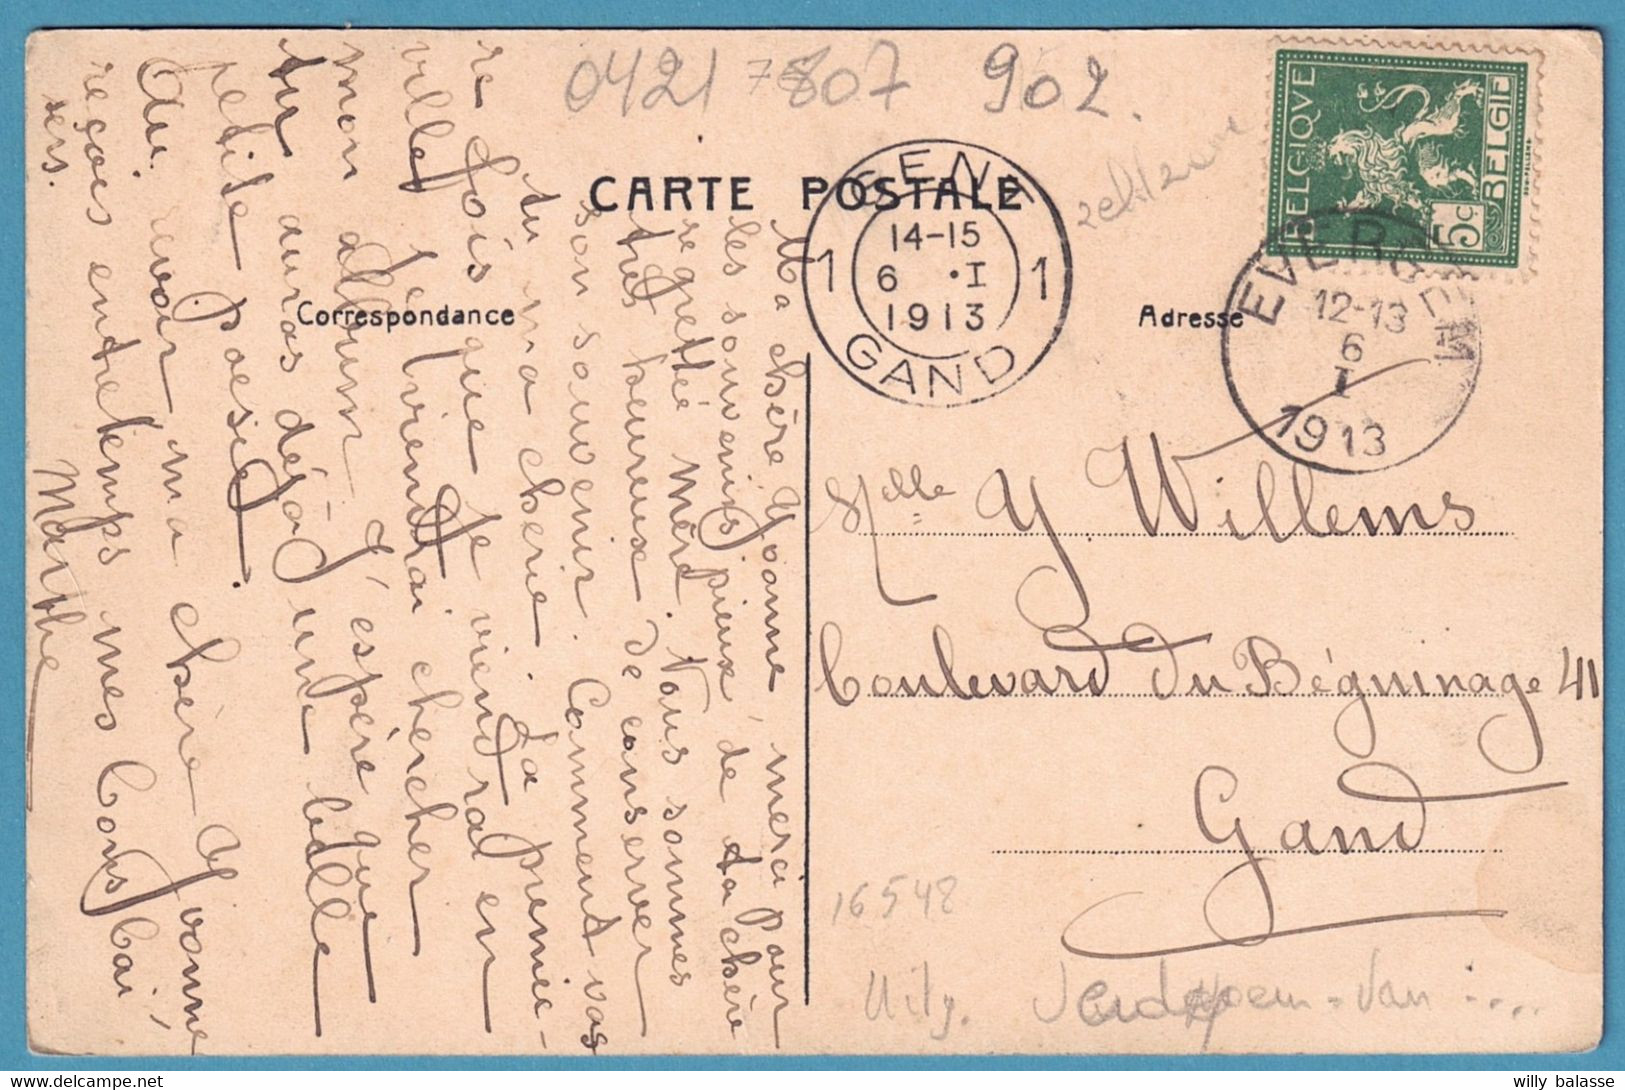 0421 7807 902.
CARTE POSTALE
Correspondance
Adresse
BELGIQUE
BELGIË
5c
GENT
14-15
6 ·I
1913
1 1
GAND
EVERGEM
12-13
6
I
1913
Ma chère Yvonne, merci pour
les souvenirs pieux de ta chère
regretté mère. Nous sommes
très heureux de conserver
son souvenir. Comment vas
tu ma cherie. La premiè-
re fois que je viendrai en
ville je viendrai chercher
mon album. J'espère que
tu auras déjà une belle
petite poesie.
Au revoir ma chère Yvonne
reçois entretemps mes bons bai,
sers.
Marthe
Mlle Y Willems
Boulevard du Béguinage 41
Gand
16548
Uitg.
willy balasse